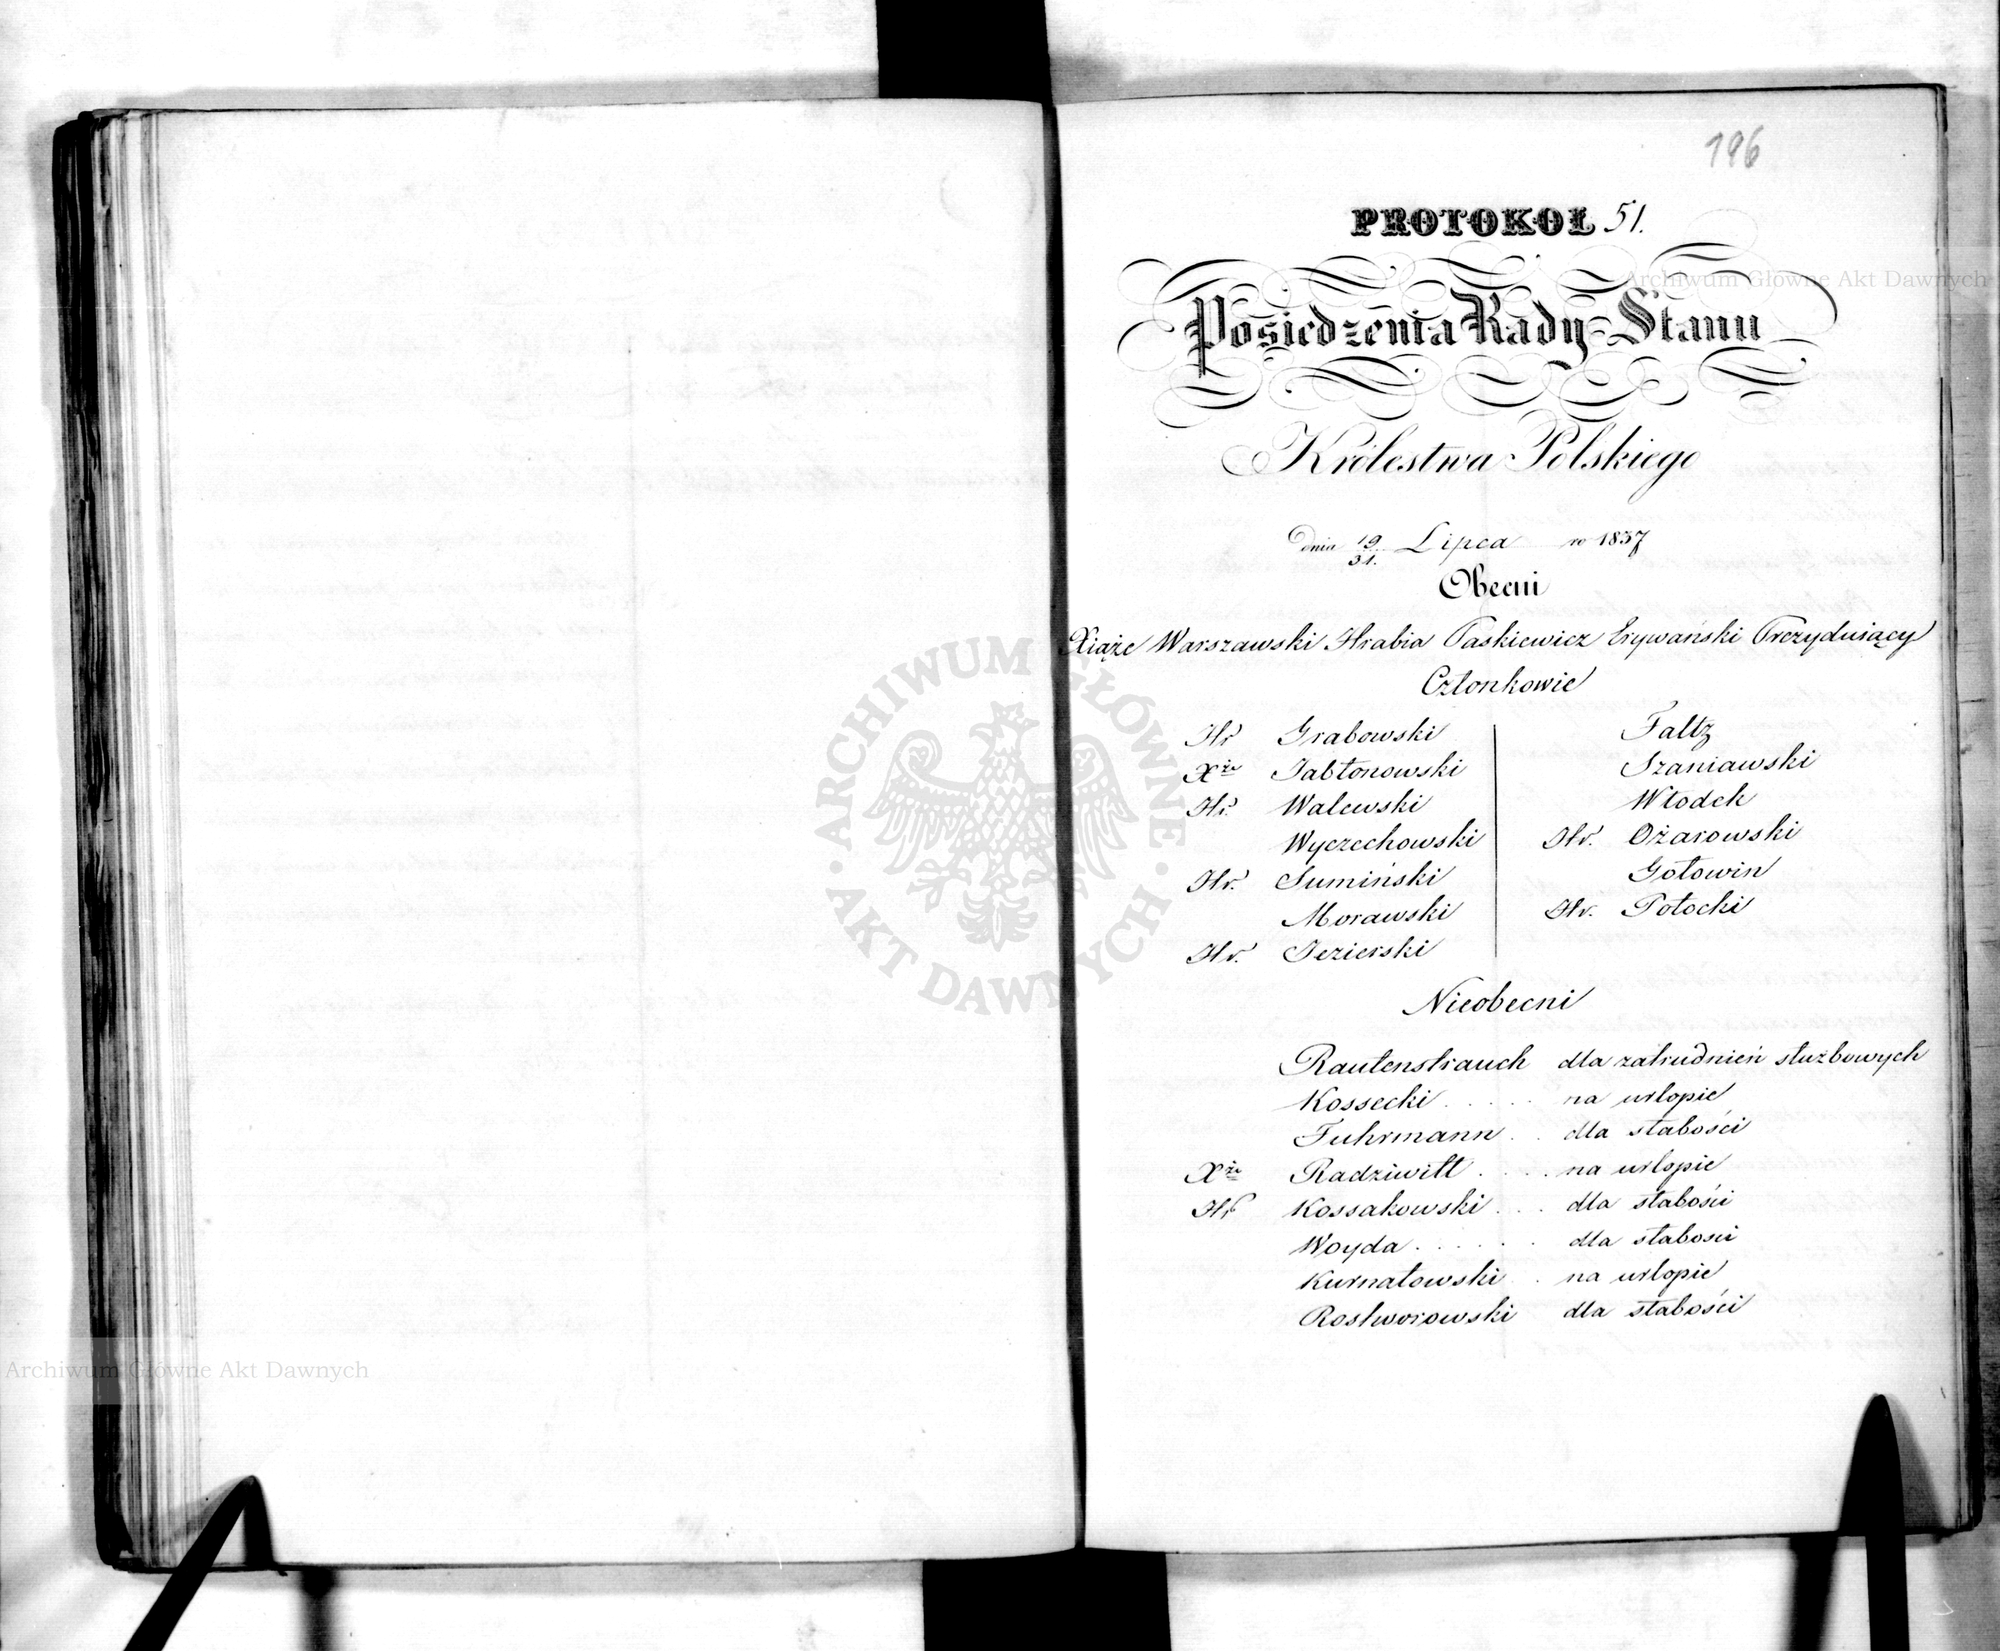 196
PROTOKOŁ 51.
Posiedzenia Rady Stanu
Królestwa Polskiego
dnia 19/31. Lipca ro 1837
Obecni
Xiąże Warszawski Hrabia Paskiewicz Erywański Prezyduiący
Członkowie
Hr Grabowski
Xże Jabłonowski
Hr. Walewski
Wyczechowski
Hr. Sumiński
Morawski
Hr. Jezierski
Faltz
Szaniawski
Włodek
Hr. Ożarowski
Gołowin
Hr. Potocki
Nieobecni
Rautenstrauch dla zatrudnień służbowych
Kossecki . . . . . na urlopie
Fuhrmann . . dla słabości
Xże Radziwiłł . . . . na urlopie
Hr Kossakowski . . . dla słabości
Woyda . . . . . . dla słabosci
Kurnatowski . . na urlopie
Rostworowski dla słabości
Archiwum Główne Akt Dawnych
ARCHIWUM GŁÓWNE AKT DAWNYCH
Archiwum Główne Akt Dawnych